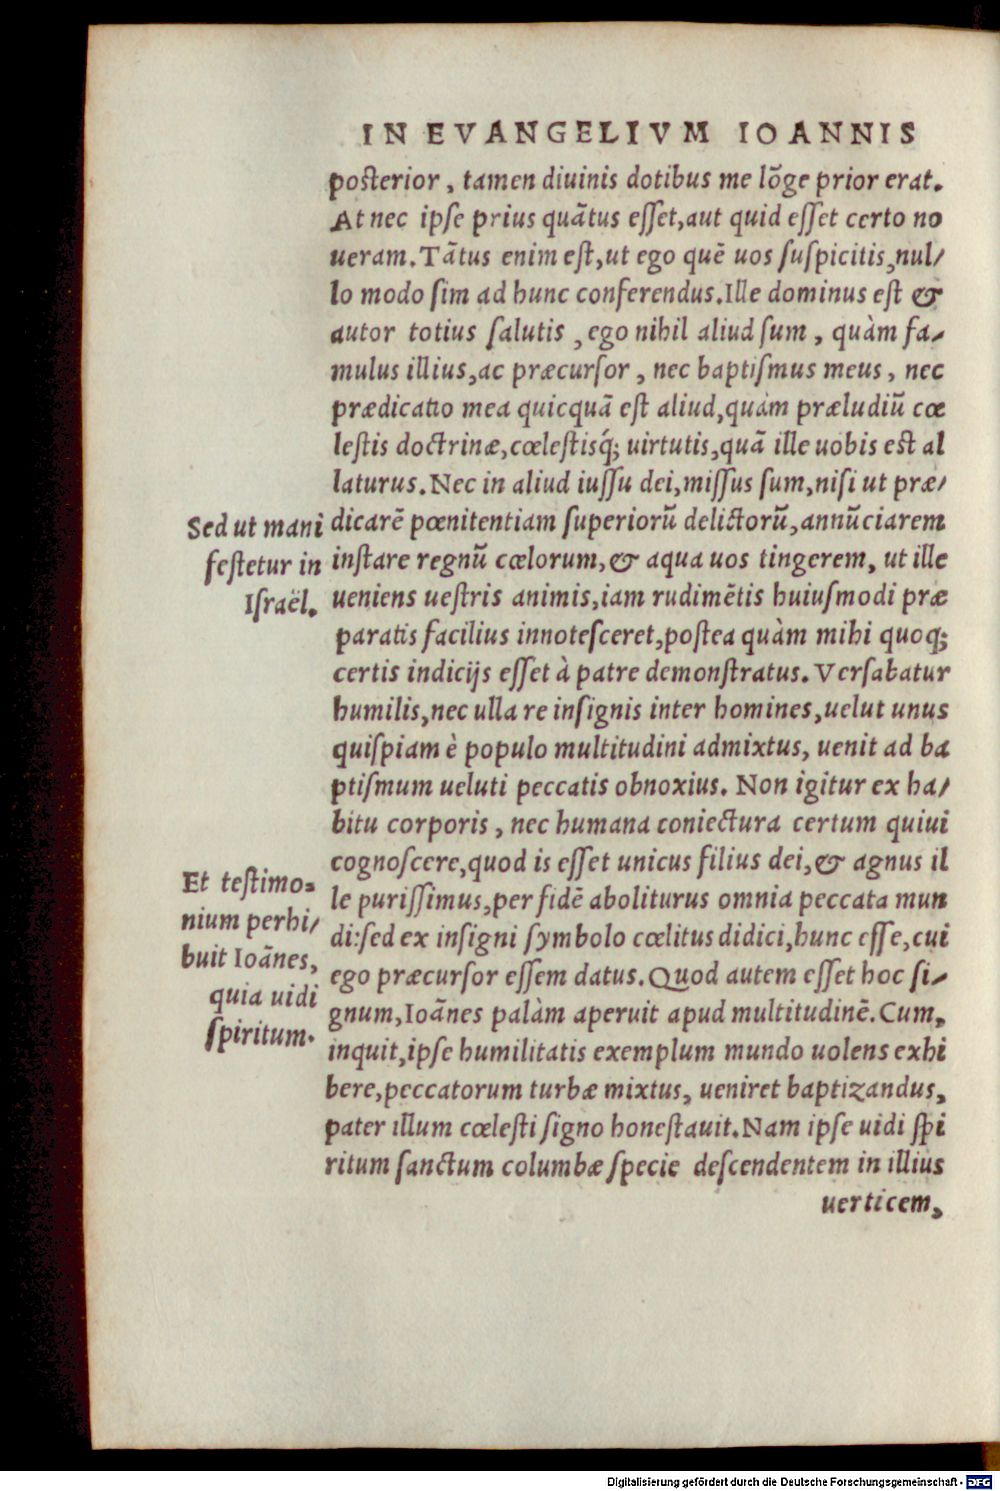 IN EVANGELIVM IOANNIS
posterior, tamen diuinis dotibus me lõge prior erat.
At nec ipse prius quãtus esset, aut quid esset certo no
ueram. Tãtus enim est, ut ego quẽ uos suspicitis, nul/
lo modo sim ad hunc conferendus. Ille dominus est &
autor totius salutis, ego nihil aliud sum, quàm fa/
mulus illius, ac præcursor, nec baptismus meus, nec
prædicatio mea quicquã est aliud, quàm præludiũ cœ
lestis doctrinæ, cœlestisq́; uirtutis, quã ille uobis est al
laturus. Nec in aliud iussu dei, missus sum, nisi ut præ/
dicarẽ pœnitentiam superiorũ delictorũ, annũciarem
instare regnũ cœlorum, & aqua uos tingerem, ut ille
ueniens uestris animis, iam rudimẽtis huiusmodi præ
paratis facilius innotesceret, postea quàm mihi quoq;
certis indicijs esset à patre demonstratus. Versabatur
humilis, nec ulla re insignis inter homines, uelut unus
quispiam è populo multitudini admixtus, uenit ad ba
ptismum ueluti peccatis obnoxius. Non igitur ex ha/
bitu corporis, nec humana coniectura certum quiui
cognoscere, quod is esset unicus filius dei, & agnus il
le purissimus, per fidẽ aboliturus omnia peccata mun
di: sed ex insigni symbolo cœlitus didici, hunc esse, cui
ego præcursor essem datus. Quod autem esset hoc si/
gnum, Ioãnes palàm aperuit apud multitudinẽ. Cum,
inquit, ipse humilitatis exemplum mundo uolens exhi
bere, peccatorum turbæ mixtus, ueniret baptizandus,
pater illum cœlesti signo honestauit. Nam ipse uidi spi
ritum sanctum columbæ specie descendentem in illius
uerticem,
Sed ut mani
festetur in
Israël.
Et testimo=
nium perhi/
buit Ioãnes,
quia uidi
spiritum.
Digitalisierung gefördert durch die Deutsche Forschungsgemeinschaft - DFG